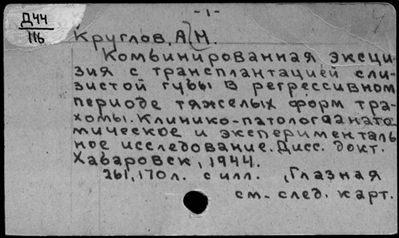 Д44
116
-1-
Круглов, А.Н.
Комбинированная эксци-
зия с трансплантацией сли-
зистой губы в регрессивном
периоде тяжелых форм тра-
хомы. Клинико-патологоанато-
мическое и эксперименталь-
ное исследование. Дисс. докт.
Хабаровск, 1944.
261, 170 л. с илл.
, Глазная
см. след. карт.